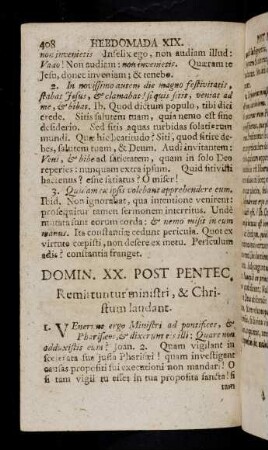 408 HEBDOMADA XIX.
non invenietis Infelix ego, non audiam illud:
Vade! Non audiam: non invenietis. Quæram te
Jesu, donec inveniam; & tenebo.
2. In novissimo autem die magno festivitatis,
stabat Jesus, & clamabat: si quis sitit, veniat ad
me, & bibat. Ib. Quod dictum populo, tibi dici
crede. Sitis salutem tuam, quia nemo est sine
desiderio. Sed sitis aquas turbidas solatiorum
mundi. Quæ hic beatitudo? Siti, quod sitire de-
bes, salutem tuam, & Deum. Audi invitantem:
Veni, & bibe ad satietatem, quam in solo Deo
reperies: nunquam extra ipsum. Quid sitivisti
hactenus? esne satiatus? O miser!
3. Quidam ex ipsis volebant apprehendere eum.
Ibid. Non ignorabat, qua intentione venirent:
prosequitur tamen sermonem interritus. Unde
mutata sunt eorum corda: & nemo misit in eum
manus. Ita constantiæ cedunt pericula. Quot ex
virtute cœpisti, non desere ex metu. Periculum
adis? constantia franget.
DOMIN. XX. POST PENTEC.
Remittuntur ministri, & Chri-
stum laudant.
1. Venerunt ergo Ministri ad pontifices, &
Pharisæos, & dixerunt eis illi: Quare non
adduxistis eum? Joan. 2. Quam vigilant in
scelerata sua jussa Pharisæi! quam investigant
causas propositi sui executioni non mandati? O
si tam vigil tu esses in tua proposita sancta! si
tam